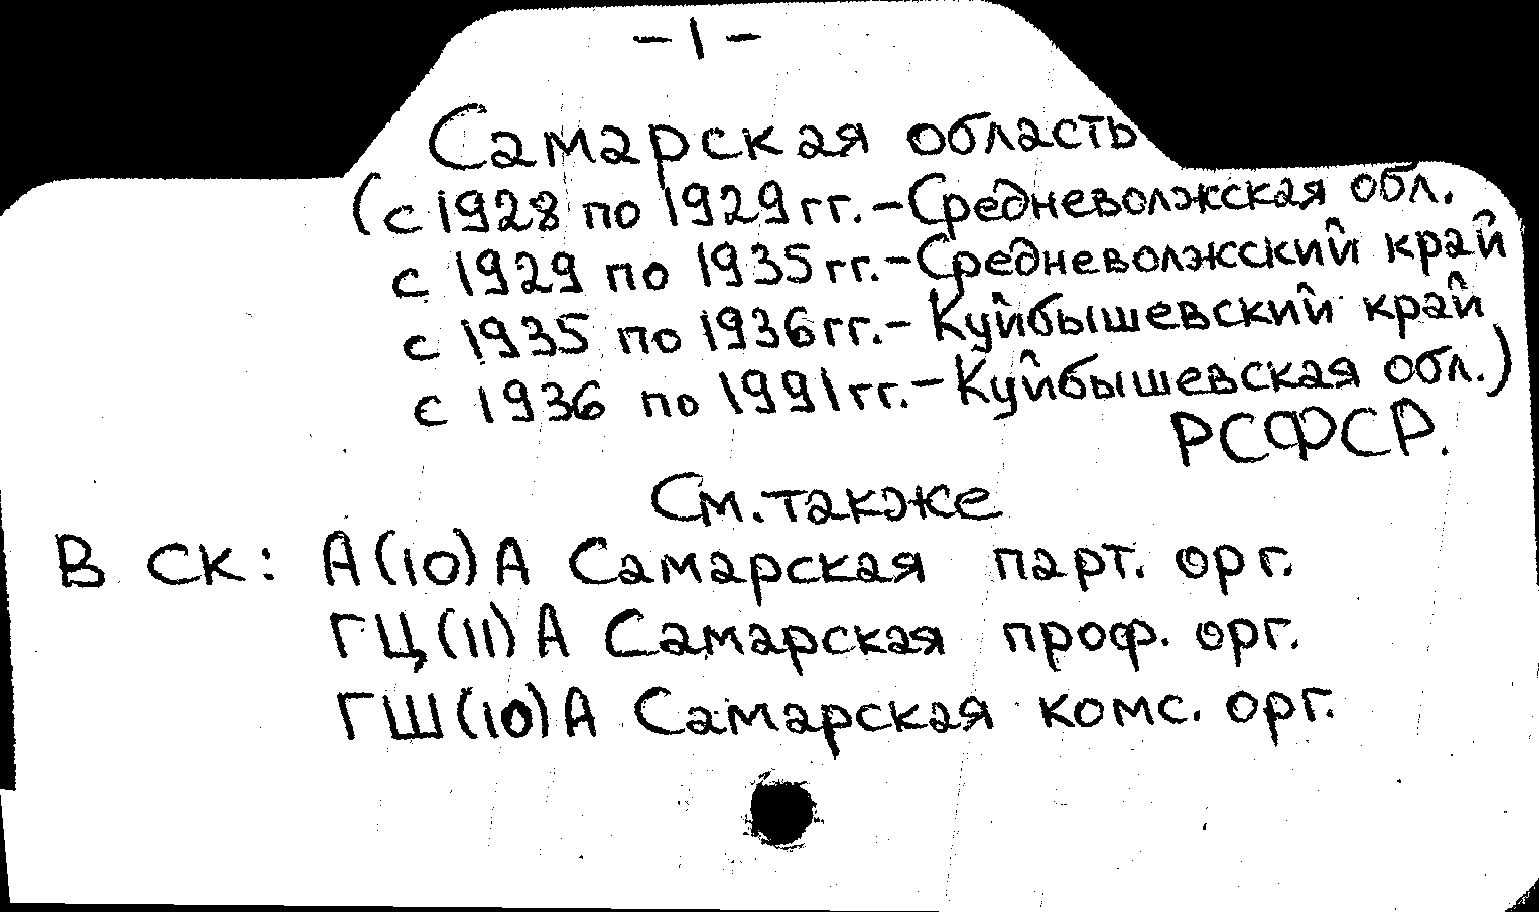 - 1 -
Самарская область
(с 1928 по 1929 гг. - Средневолжская обл.
с 1929 по 1935 гг. - Средневолжсский край
с 1935 по 1936 гг. - Куйбышевский край
с 1936 по 1991 гг. - Куйбышевская обл.)
РСФСР.
См. также
В СК: А(10)А Самарская парт. орг.
ГЦ(11)А Самарская проф. орг.
ГШ(10)А Самарская комс. орг.